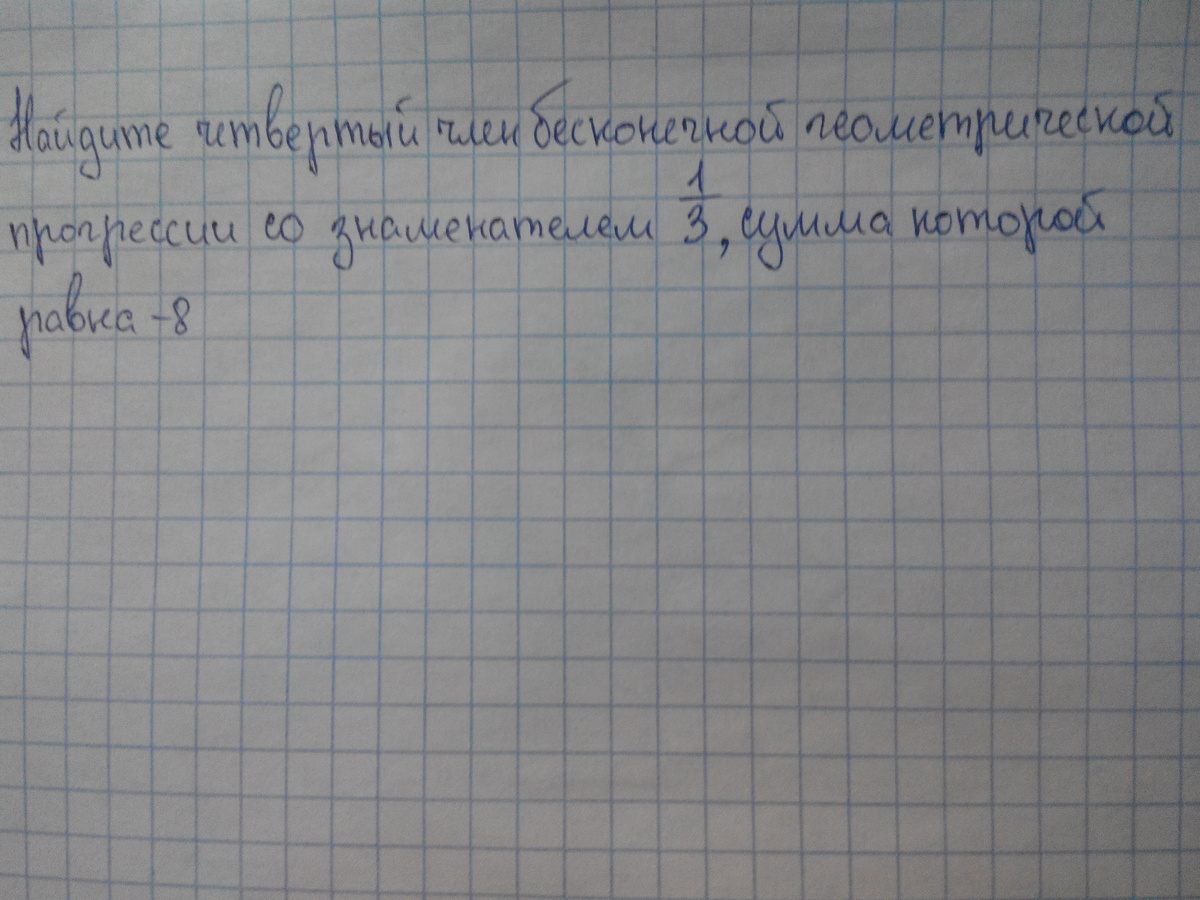 Найдите четвертый член бесконечной геометрической
прогрессии со знаменателем 1/3, сумма которой
равна -8